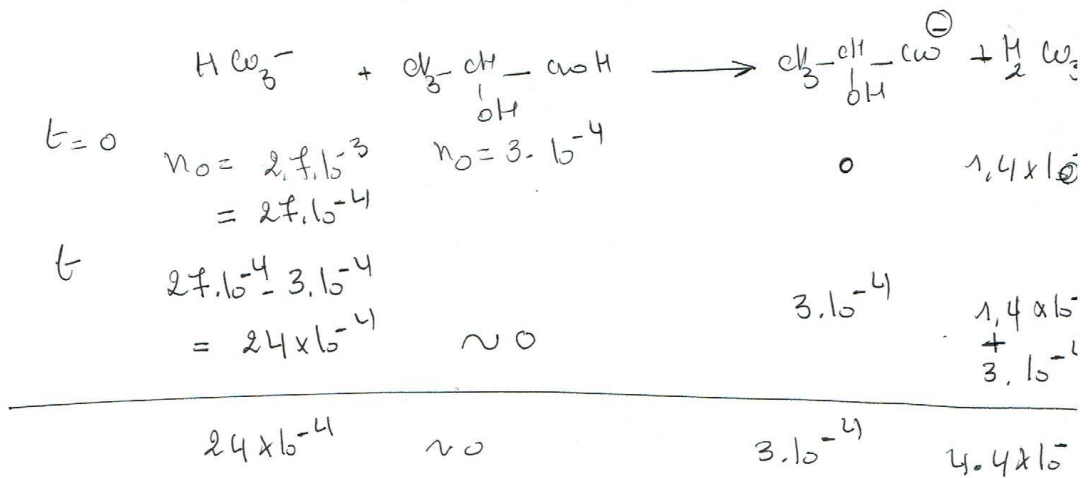 HCO₃⁻ + CH₃-CH-COOH ⟶ CH₃-CH-COO⊖ + H₂CO₃
OH OH
t=0 n₀= 2,7.10⁻³ n₀=3.10⁻⁴ 0 1,4×10
= 27.10⁻⁴
t 27.10⁻⁴ - 3.10⁻⁴ 3.10⁻⁴ 1,4×10⁻
= 24×10⁻⁴ ~0 +
3.10⁻⁴
24×10⁻⁴ ~0 3.10⁻⁴ 4.4×10⁻